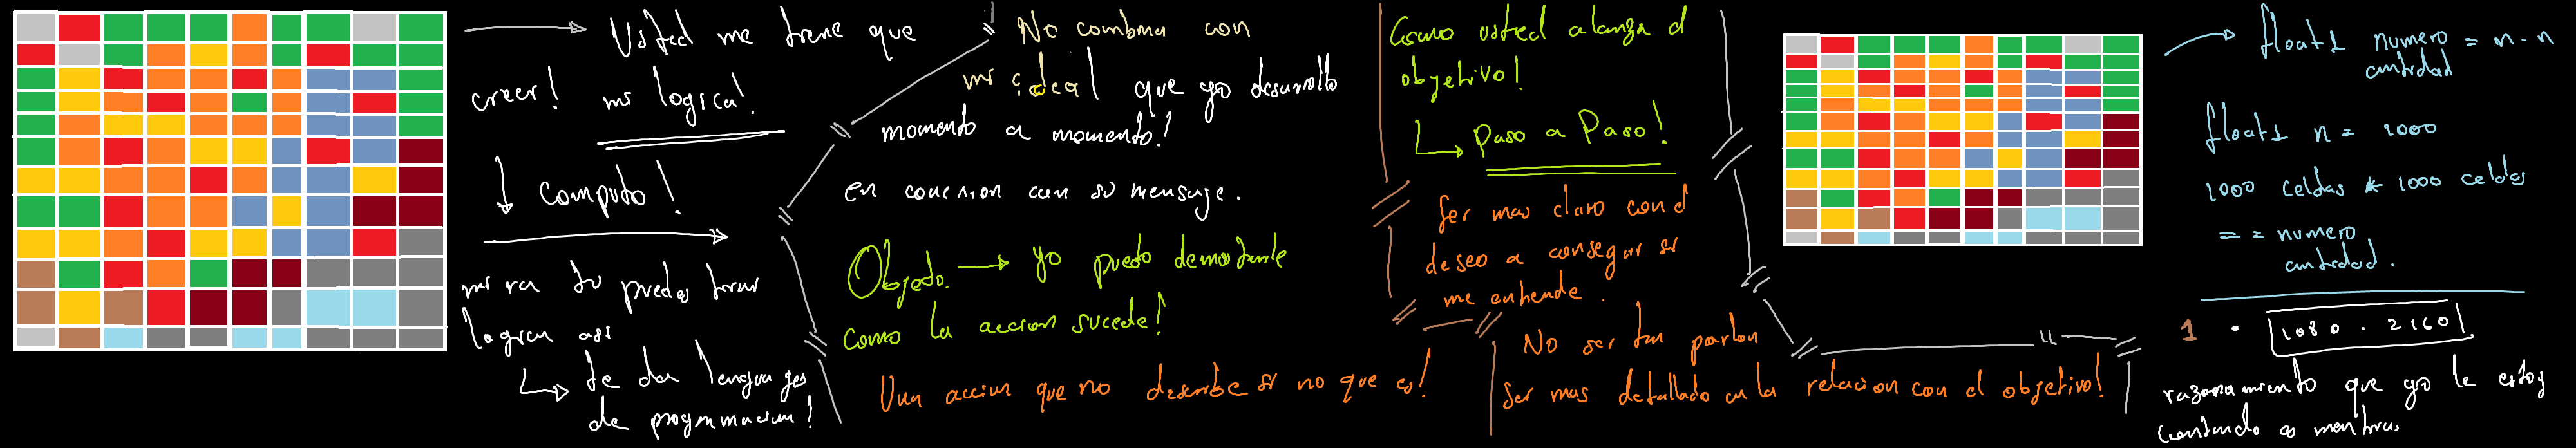 Usted me tiene que
creer! mi logica!
Computo!
mira tu puedes
logica asi
te da lenguages
de programacion!
No combina con
mi ideal que yo desarrollo
momento a momento!
en conexion con su mensage.
Objeto. → yo puedo demostrarle
como la accion sucede!
Una accion que no describe si no que es!
Como usted alcanza el
objetivo!
Paso a Paso!
Ser mas claro con el
deseo a conseguir si
me entiende.
No ser tan parlon
Ser mas detallado en la relacion con el objetivo!
float1 numero = n · n
cantidad
float1 n = 1000
1000 celdas * 1000 celdas
= = numero
cantidad.
1 · 1080 · 2160
razonamiento que yo le estoy
contando es mentira